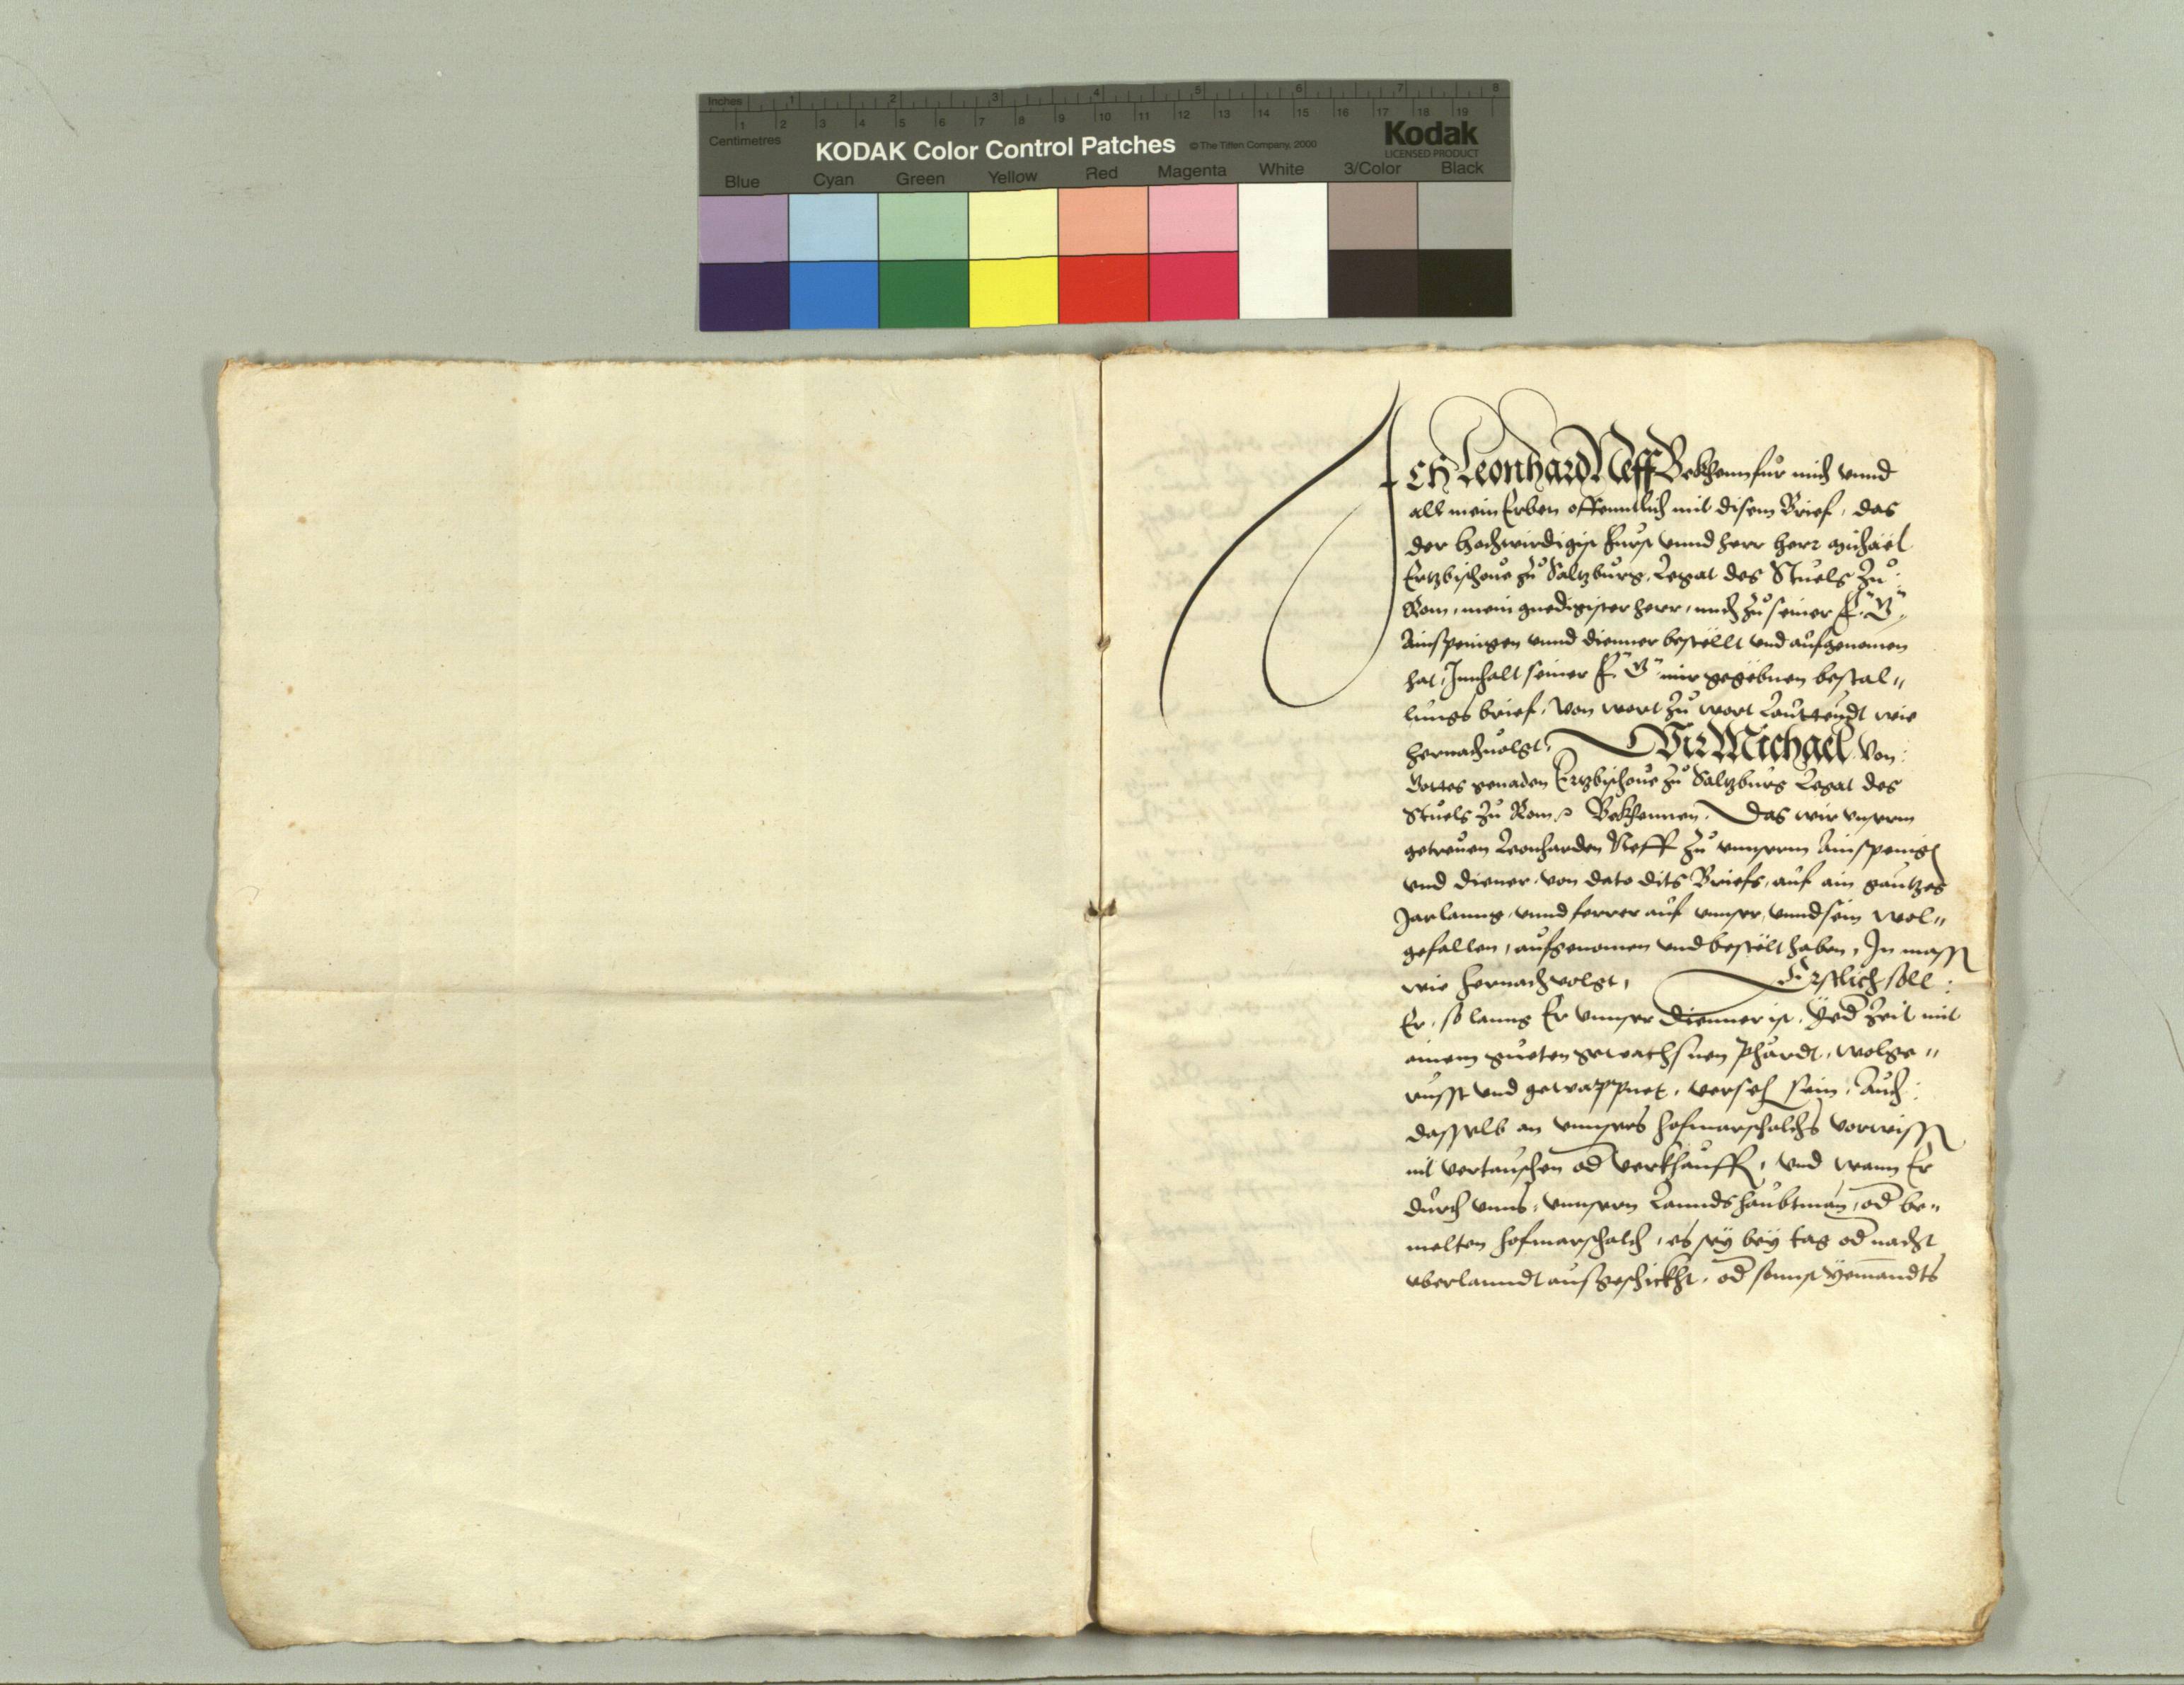 Inches 1 2 3 4 5 6 7 8
1 2 3 4 5 6 7 8 9 10 11 12 13 14 15 16 17 18 19
Centimetres
KODAK Color Control Patches © The Tiffen Company, 2000
Kodak
LICENSED PRODUCT
Blue Cyan Green Yellow Red Magenta White 3/Color Black
Ich Leonhard Neff Bekhenn für mich vnnd
all mein Erben offenntlich mit disem Brief, das
der hochwirdigist Fürst vnnd herr herr Michäel
Ertzbischoue zů Saltzburg, Legat des Stuels zů
Rom, mein gnedigister herr, mich zů seiner F. G.
Ainspenigen vnnd dienner bestëllt vnd aufgenomen
hat, Innhalt seiner F. G. mir gegëbnen bestal„
lungs brief, Von wort zů wort Lauttendt wie
hernachuolgt, Wir Michael Von
Gottes genaden Ertzbischoue zů Saltzburg Legat des
Stuels zů Rom Bekhennen, Das wir vnserm
getreuen Leonharden Neff zů vnnserm Ainspenig
vnd diener, von dato dits Briefs, auf ain gantzes
Jarlanng, vnnd ferrer auf vnnser, vnnd sein wol„
gefallen, aufgenomen vnd bestëlt haben, In mass
wie hernachuolgt, Erstlich soll
Er, so lanng Er vnnser dienner ist, Yed Zeit mit
einem gueten gewachsnen Phärdt, wolge„
russt vnd gewappnet, verseh sein, Auch
dasselb an vnnsers hofmarschalchs vorwiss
nit vertauschen od verkhauff, vnd wann Er
durch vnns, vnnsern Lanndshaubtman, od be„
melten hofmarschalch, es sey bey tag od nacht
vberlanndt ausgeschickht, od sunst yemandts